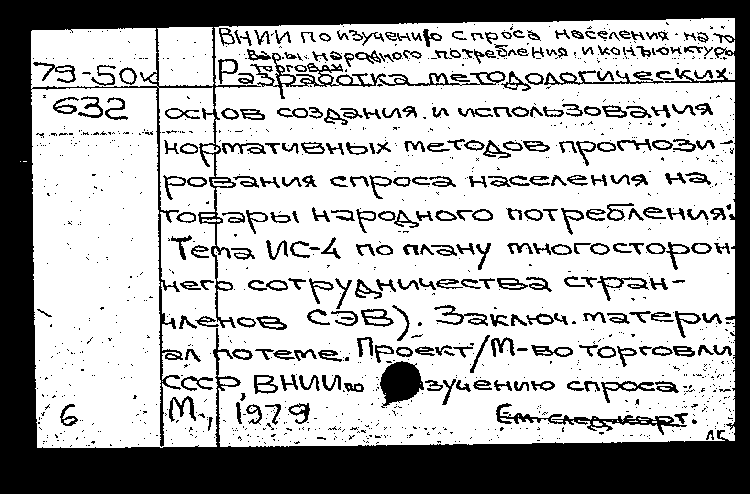 ВНИИ по изучению спроса населения на то
вары народного потребления и конъюнктуры
торговли.
79-50к Разработка методологических
632 основ создания и использования
нормативных методов прогнози-
рования спроса населения на
товары народного потребления:
Тема ИС-4 по плану многосторон-
него сотрудничества стран-
членов СЭВ). Заключ. матери-
ал по теме. Проект/М-во торговли
СССР, ВНИИ по изучению спроса
6 М., 1979 См. след. карт.